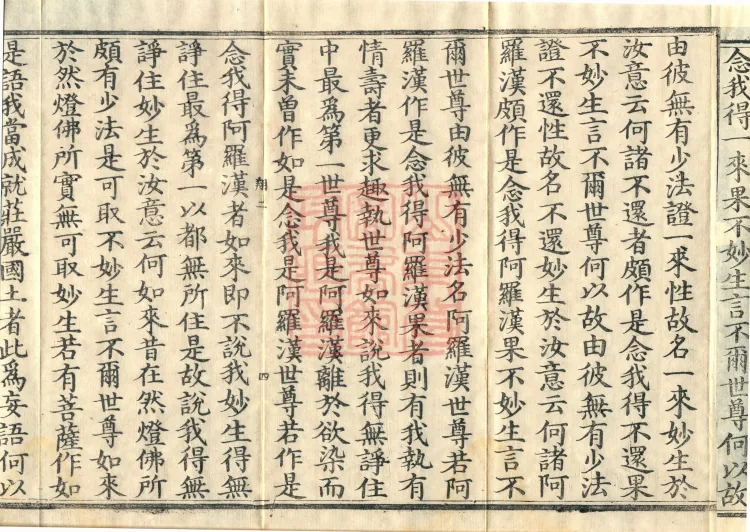 念我得一來果不妙生言不爾世尊何以故
由彼無有少法證一來性故名一來妙生於
汝意云何諸不還者頗作是念我得不還果
不妙生言不爾世尊何以故由彼無有少法
證不還性故名不還妙生於汝意云何諸阿
羅漢頗作是念我得阿羅漢果不妙生言不
爾世尊由彼無有少法名阿羅漢世尊若阿
羅漢作是念我得阿羅漢果者則有我執有
情壽者更求趣執世尊如來說我得無諍住
中最爲第一世尊我是阿羅漢離於欲染而
實未曾作如是念我是阿羅漢世尊若作是
翔二
四
念我得阿羅漢者如來即不說我妙生得無
諍住最爲第一以都無所住是故說我得無
諍住妙生於汝意云何如來昔在然燈佛所
頗有少法是可取不妙生言不爾世尊如來
於然燈佛所實無可取妙生若有菩薩作如
是語我當成就莊嚴國土者此爲妄語何以